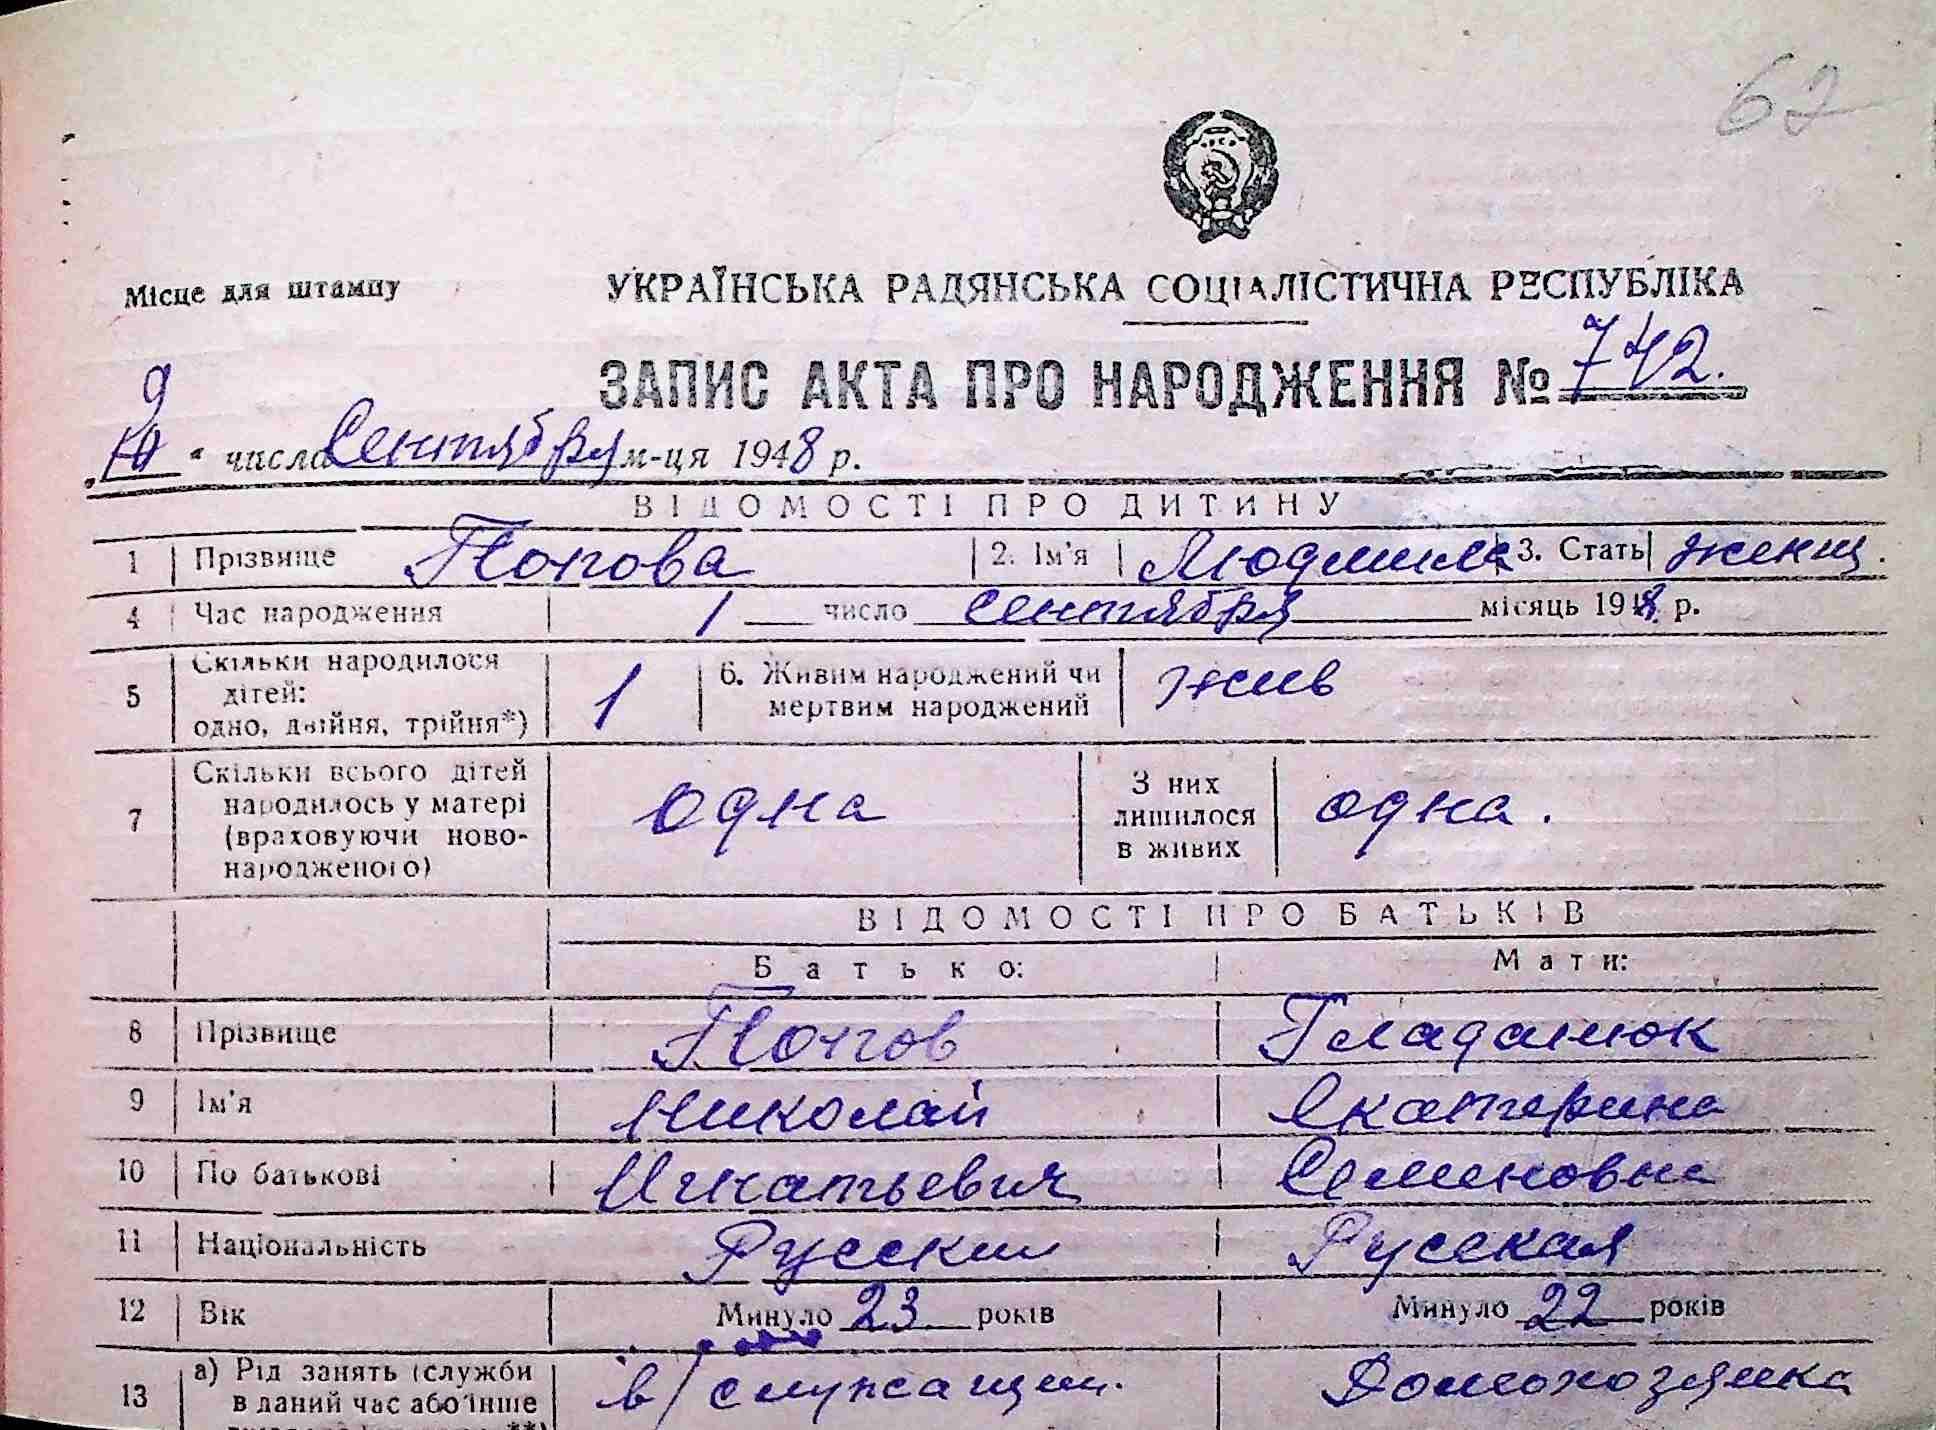 62
Місце для штампу
УКРАЇНСЬКА РАДЯНСЬКА СОЦІАЛІСТИЧНА РЕСПУБЛІКА
ЗАПИС АКТА ПРО НАРОДЖЕННЯ № 742.
9
„10“ числа Сентября м-ця 1948 р.
ВІДОМОСТІ ПРО ДИТИНУ
1 Прізвище Попова 2. Ім'я Людмила 3. Стать женщ.
4 Час народження 1 число Сентября місяць 1948 р.
5 Скільки народилося дітей: одно, двійня, трійня*) 1 6. Живим народжений чи мертвим народжений жив
7 Скільки всього дітей народилось у матері (враховуючи ново-народженого) одна З них лишилося в живих одна.
ВІДОМОСТІ ПРО БАТЬКІВ
Батько: Мати:
8 Прізвище Попов Гладанюк
9 Ім'я Николай Екатерина
10 По батькові Игнатьевич Семеновна
11 Національність Русский Русская
12 Вік Минуло 23 років Минуло 22 років
13 а) Рід занять (служби в даний час або інше в/служащий. Домохозяйка